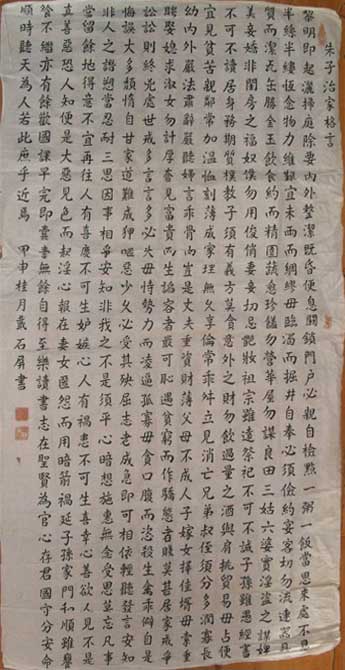 朱子治家格言
黎明即起灑掃庭除要內外整潔既昏便息關鎖門户必親自檢點一粥一飯當思來處不易
半絲半縷恆念物力維艱宜未雨而綢繆毋臨渴而掘井自奉必須儉約宴客切勿流連器具
質而潔瓦缶勝金玉飲食約而精園蔬愈珍饈勿營華屋勿謀良田三姑六婆實淫盜之媒婢
美妾嬌非閨房之福奴僕勿用俊俏妻妾切忌艷妝祖宗雖遠祭祀不可不誠子孫雖愚經書
不可不讀居身務期質樸教子須有義方莫貪意外之財勿飲過量之酒與肩挑貿易毋占便
宜見貧苦親鄰當加溫恤刻薄成家理無久享倫常乖舛立見消亡兄弟叔侄須分多潤寡長
幼內外嚴法肅辭嚴聽婦言乖骨肉豈是丈夫重資財薄父母不成人子嫁女擇佳婿毋索重
聘娶媳求淑女勿計厚奩見富貴而生諂容者最可恥遇貧窮而作驕態者賤莫甚居家戒爭
訟訟則終凶處世戒多言言多必失毋恃勢力而凌逼孤寡毋貪口腹而恣殺生禽乖僻自是
悔誤大多頹惰自甘家道難成狎暱惡少久必受其殃屈志老成急即可相依輕聽發言安知
非人之譖愬當忍耐三思因事相爭安知非我之不是須平心暗想施惠無念受恩莫忘凡事
當留餘地得意不宜再往人有喜慶不可生妒嫉心人有禍患不可生喜幸心善欲人見不是
真善惡恐人知便是大惡見色而起淫心報在妻女匿怨而用暗箭禍延子孫家門和順雖饔
飧不繼亦有餘歡國課早完即囊橐無餘自得至樂讀書志在聖賢為官心存君國守分安命
順時聽天為人若此庶乎近焉 甲申桂月戴石屏書